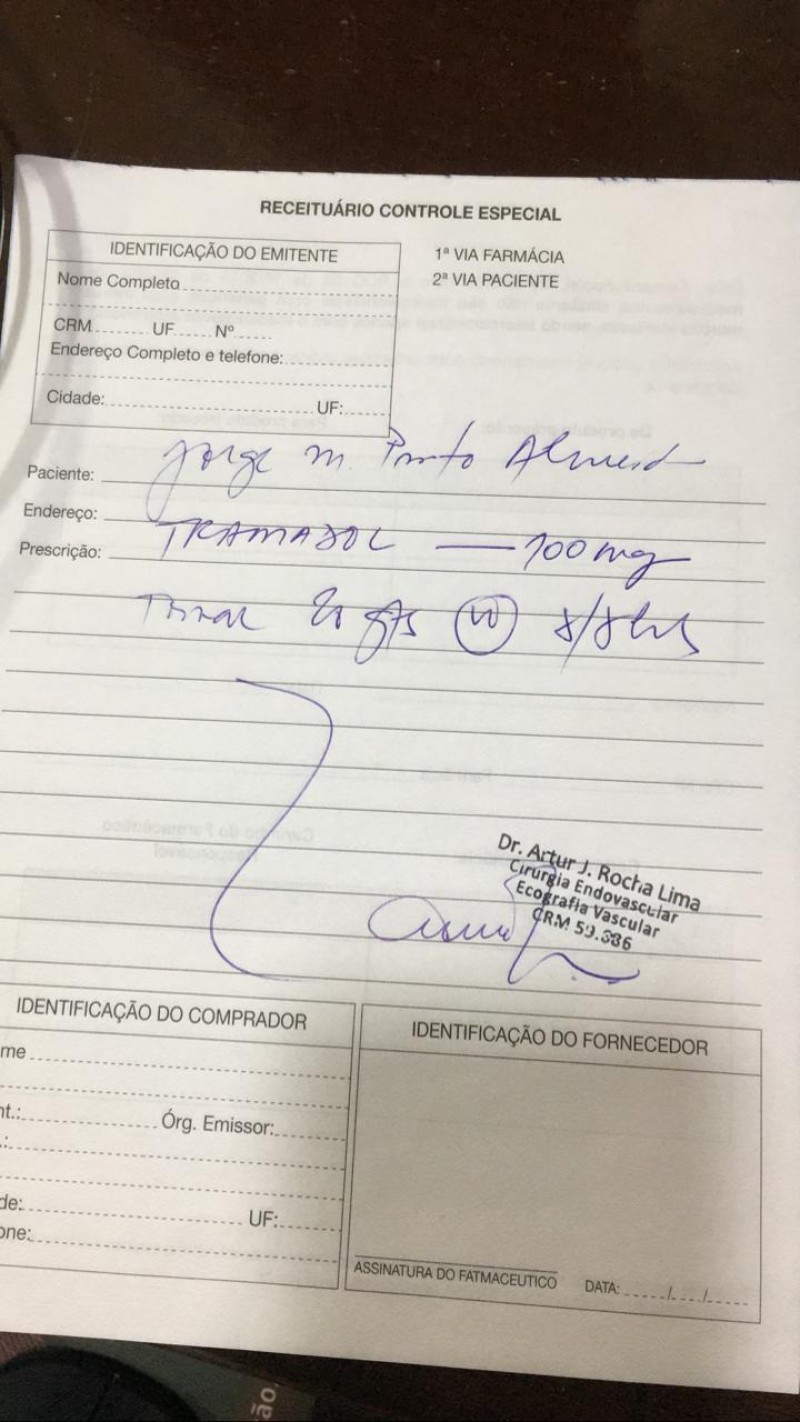 RECEITUÁRIO CONTROLE ESPECIAL
IDENTIFICAÇÃO DO EMITENTE
1ª VIA FARMÁCIA
2ª VIA PACIENTE
Nome Completo
CRM UF Nº
Endereço Completo e telefone:
Cidade: UF:
Paciente: Jorge M. Porto Almeid
Endereço:
Prescrição: TRAMADOL — 100 mg
Tomar gts VO 8/8hs
Dr. Artur J. Rocha Lima
Cirurgia Endovascular
Ecografia Vascular
CRM
IDENTIFICAÇÃO DO COMPRADOR
me
nt.: Órg. Emissor:
.:
de: UF:
one:
IDENTIFICAÇÃO DO FORNECEDOR
ASSINATURA DO FATMACEUTICO DATA: / /
ão,